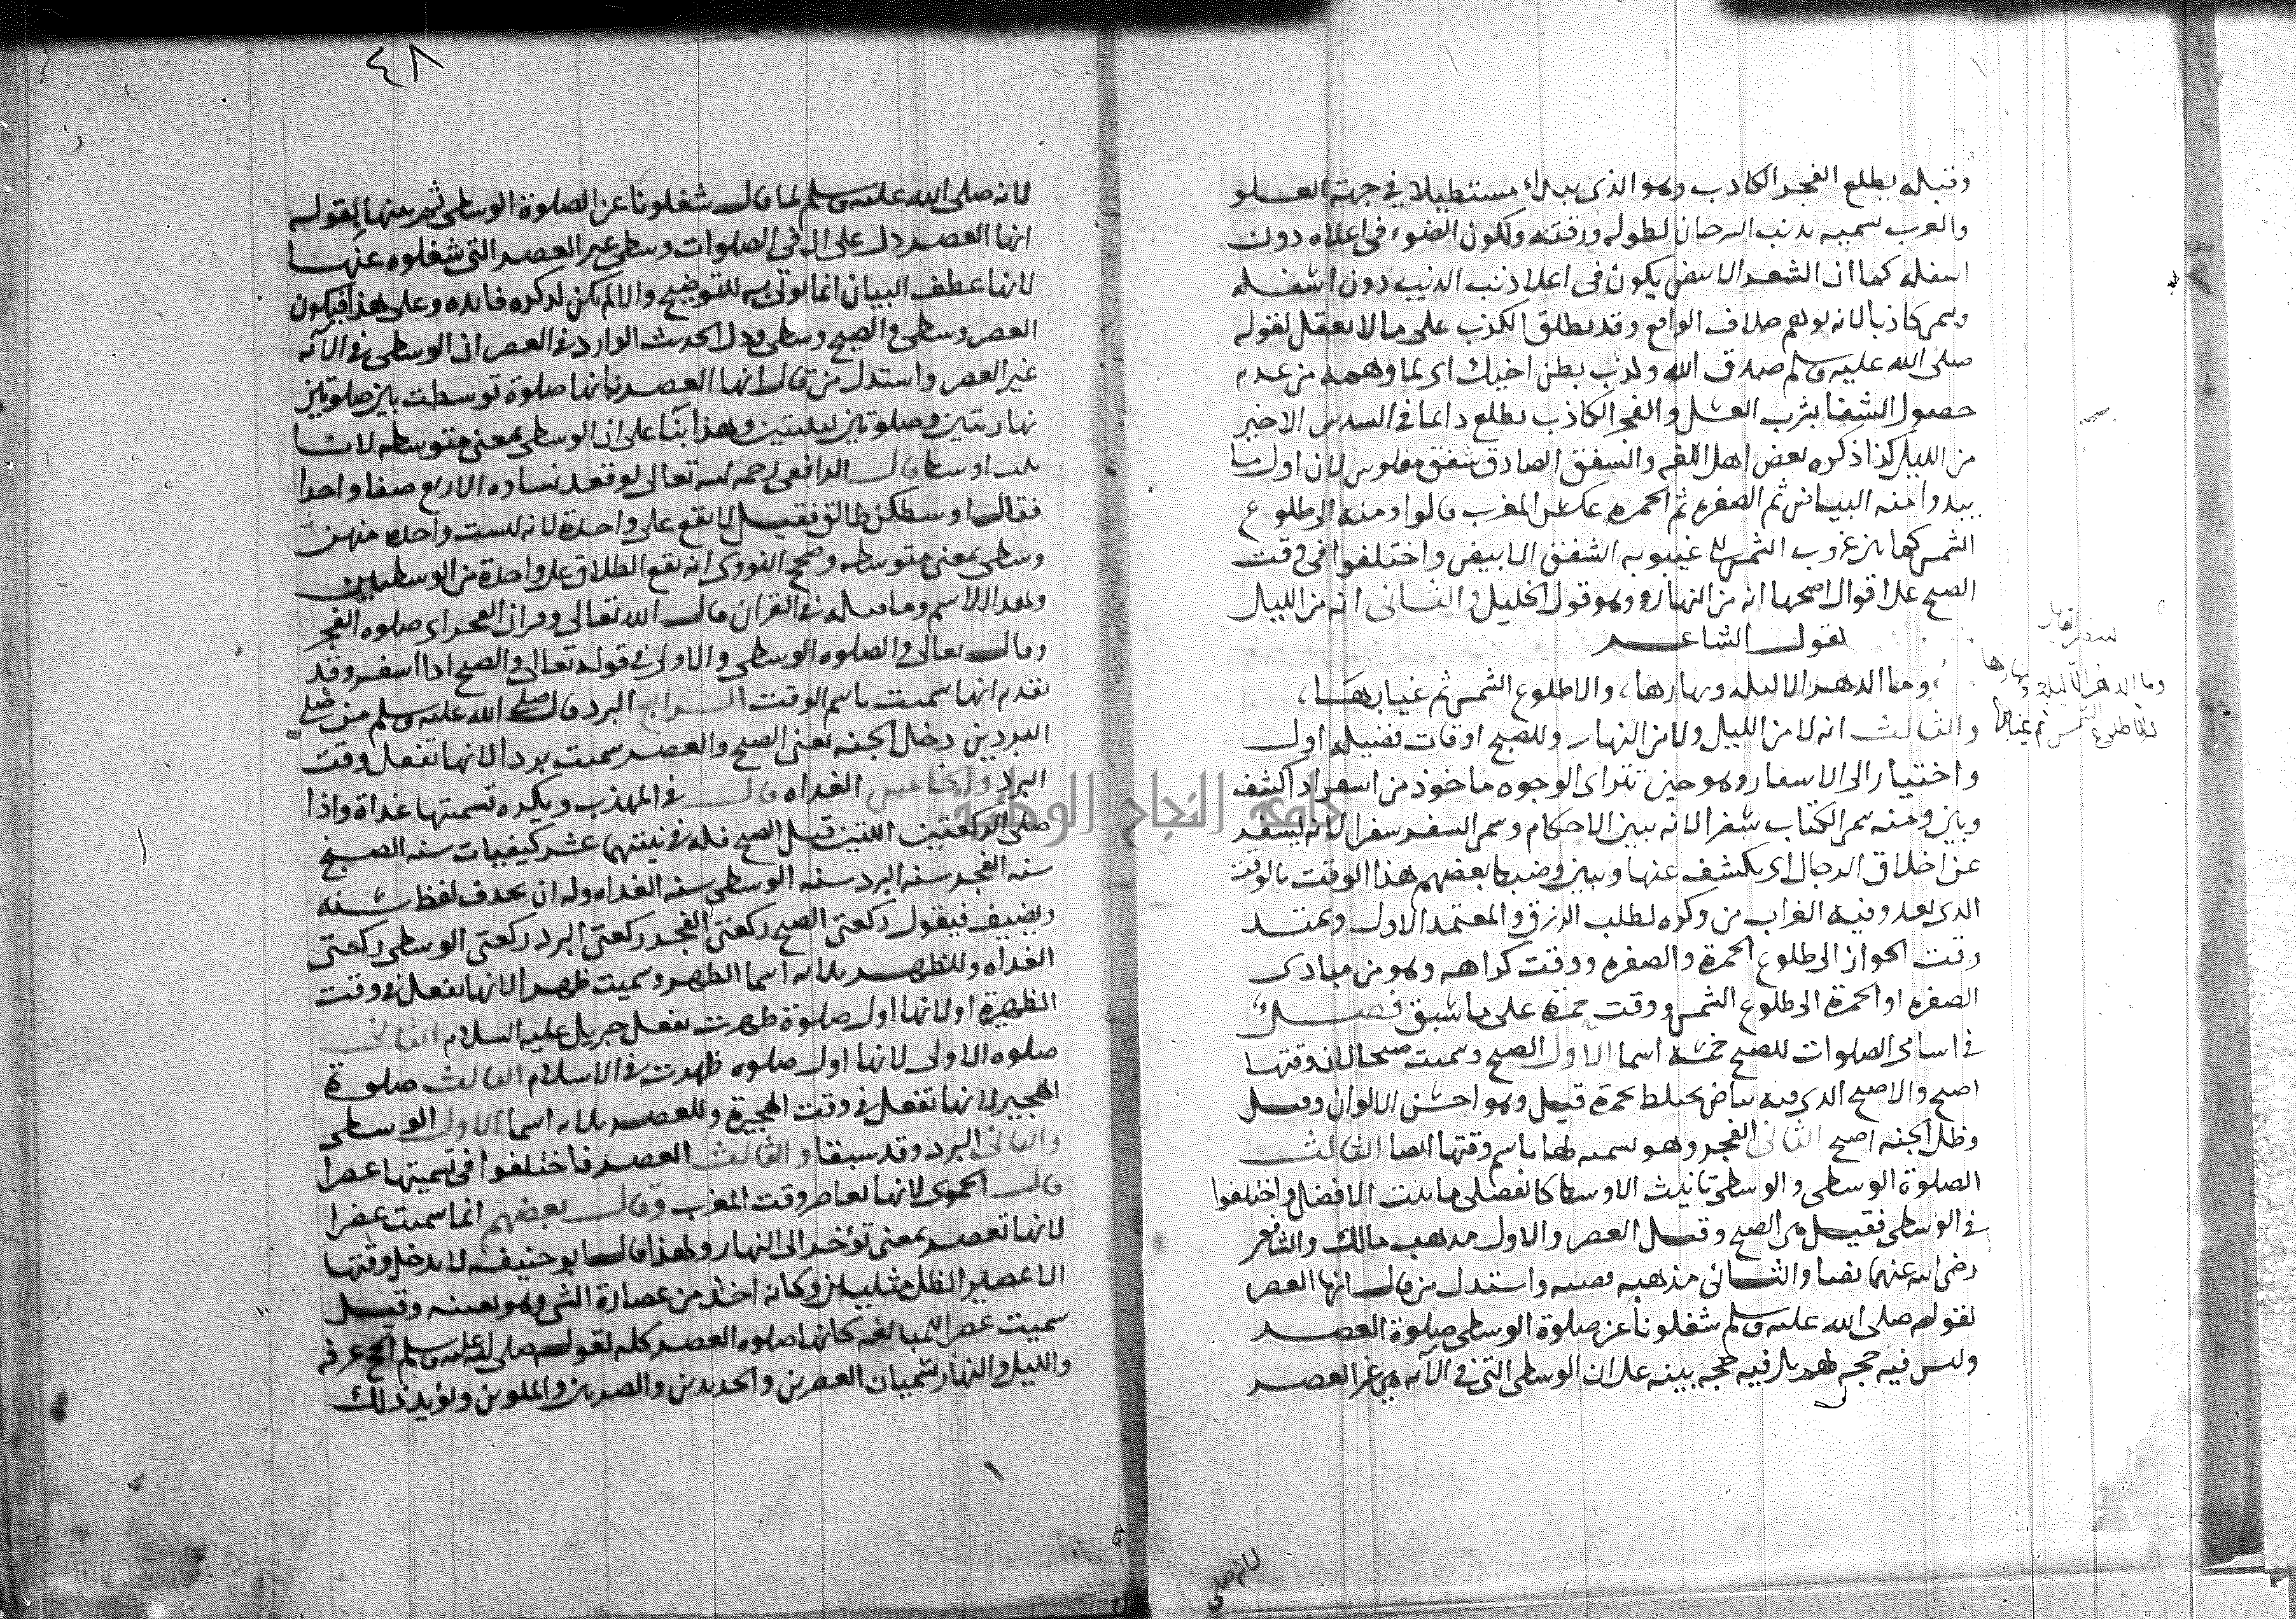 وقبله يطلع الفجر الكاذب وهو الذي يبدأ مستطيلا في جهة العلو
والعرب تسميه بذنب السرحان لطوله ورقته ولكون الضوء في اعلاه دون
اسفله كما ان الشعر الابيض يكون في اعلا ذنب الذيب دون اسفله
وسمى كاذبا لانه يوهم خلاف الواقع وقد يطلق الكذب على ما لا يعقل لقوله
صلى الله عليه وسلم صدق الله وكذب بطن اخيك اي لما وهمه من عدم
حصول الشفا بشرب العسل والفجر الكاذب يطلع دائما في السدس الاخير
من الليل كذا ذكره بعض اهل اللغه والشفق الصادق شفق معلوس لان اول ما
يبدوا منه البياض ثم الصفره ثم الحمره عكس المغرب قالوا ومنه الى طلوع
الشمس كما بين غروب الشمس الى غيبوبه الشفق الابيض واختلفوا في وقت
الصبح على اقوال اصحها انه من النهار وهو قول الخليل والثاني انه من الليل
لقول الشاعر
وما الدهر الا ليله ونهارها، والا طلوع الشمس ثم غيابها،
والثالث انه لا من الليل ولا من النهار وللصبح اوقات فضيله اول
واختيار الى الاسفار وهو حين تتراى الوجوه ماخوذ من اسفر اذا كشف
وبين ومنه سمى الكتاب سفرا لانه يبين الاحكام وسمى السفر سفرا لانه يسفر
عن اخلاق الرجال اي يكشف عنها ويبين وضبط بعضهم هذا الوقت بالوقت
الذي يغدو فيه الغراب من وكره لطلب الرزق والمعتمد الاول ويمتد
وقت الجواز الى طلوع الحمرة والصفره ووقت كراهه وهو من مبادى
الصفره او الحمرة الى طلوع الشمس ووقت حرمة على ما سبق فصل
في اسامى الصلوات للصبح خمسة اسما الاول الصبح وسميت صبحا لان وقتها
اصبح والاصبح الذي فيه بياض يختلط بحمرة قيل وهو احسن الالوان وقيل
وظل الجنه اصبح الثاني الفجر وهو تسميه لها باسم وقتها ايضا الثالث
الصلوة الوسطى والوسطى تانيث الاوسط كالفضلى تانيث الافضل واختلفوا
في الوسطى فقيل هى الصبح وقيل العصر والاول مذهب مالك والشافعي
رضى الله عنهما نصا والثاني مذهبه نصه واستدل من قال انها العصر
لقوله صلى الله عليه وسلم شغلونا عن صلوة الوسطى صلوة العصر
وليس فيه حجه لهم بل فيه حجه بينه على ان الوسطى التي في الآيه هي غير العصر
لانه صلى
وما الدهر الا ليلة ونهارها
والا طلوع الشمس ثم غيابها
٤٨
لانه صلى الله عليه وسلم لما قال شغلونا عن الصلوة الوسطى ثم بينها بقوله
انها العصر دل على ان في الصلوات وسطى غير العصر التي شغلوه عنها
لانها عطف البيان انما يؤتى به للتوضيح والا لم يكن لذكره فائده وعلى هذا فيكون
العصر وسطى والصبح وسطى ودل الحديث الوارد في العصر ان الوسطى في الآيه
غير العصر واستدل من قال انها العصر بانها صلوة توسطت بين صلوتين
نهاريتين وصلوتين ليليتين وهذا بنا على ان الوسطى بمعنى متوسطه لا تانيث
اوسط قال الرافعي رحمه الله تعالى لو قعد نساؤه الاربع صفا واحدا
فقال اوسطكن طالق فقيل لا يقع على واحدة لانه ليست واحده منهن
وسطى بمعنى متوسطه وصحح النووي انه يقع الطلاق على واحدة من الوسطيين
وهذا الاسم وما قبله في القران قال الله تعالى وقران الفجر اي صلوه الفجر
وقال تعالى والصلوه الوسطى والاولى في قوله تعالى والصبح اذا اسفر وقد
تقدم انها سميت باسم الوقت الرابع البرد قال صلى الله عليه وسلم من صلى
البردين دخل الجنه يعنى الصبح والعصر سميت بردا لانها تفعل وقت
البرد والخامس الغداه قال في المهذب ويكره تسميتها غداة واذا
صلى الركعتين اللتين قبل الصبح فله في نيتهما عشر كيفيات سنه الصبح
سنه الفجر سنه البرد سنه الوسطى سنه الغداه وله ان يحذف لفظ سنه
ويضيف فيقول ركعتي الصبح ركعتي الفجر ركعتي البرد ركعتي الوسطى ركعتي
الغداه وللظهر ثلاثه اسما الظهر وسميت ظهرا لانها تفعل في وقت
الظهيرة او لانها اول صلوة ظهرت بفعل جبريل عليه السلام الثاني
صلوه الاولى لانها اول صلوه ظهرت في الاسلام الثالث صلوة
الهجير لانها تفعل في وقت الهجيرة وللعصر ثلاثه اسما الاول الوسطى
والثاني البرد وقد سبقا والثالث العصر فاختلفوا في تسميتها عصرا
قال الحموي لانها تعاصر وقت المغرب وقال بعضهم انما سميت عصرا
لانها تعصر بمعنى تؤخر الى النهار ولهذا قال ابو حنيفه لا يدخل وقتها
الا عصير الظل مثليين وكانه اخذ من عصارة الشي وهو بعينه وقيل
سميت عصرا للمبالغه كانها صلوه العصر كله لقوله صلى الله عليه وسلم الحج عرفه
والليل والنهار يسميان العصرين والجديدين والصرمين والملوين ويؤيد ذلك